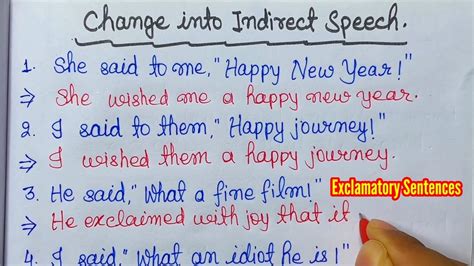 Change into Indirect Speech.
1. She said to me, "Happy New Year!"
⇒ She wished me a happy new year.
2. I said to them, "Happy journey!"
⇒ I wished them a happy journey.
3. He said, "What a fine film!"
Exclamatory Sentences
⇒ He exclaimed with joy that it
4. I said, "What an idiot he is!"